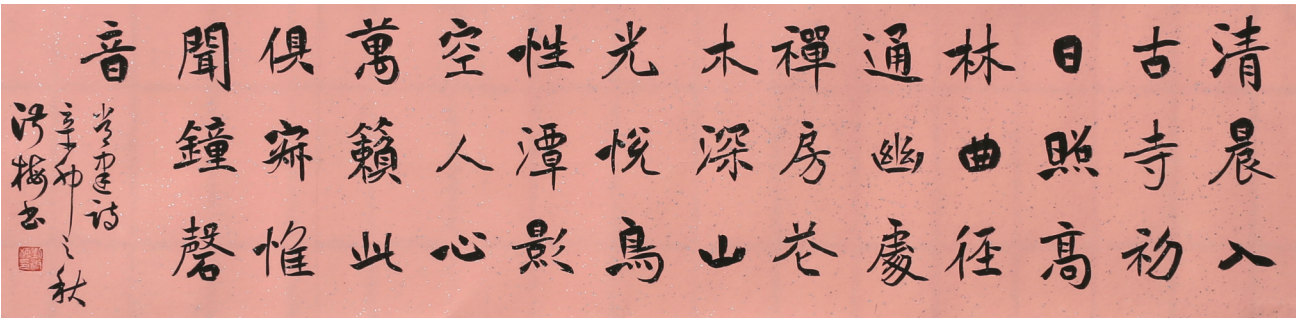 清晨入
古寺初
日照高
林曲径
通幽處
禪房花
木深山
光悦鳥
性潭影
空人心
萬籟此
俱寂惟
聞鐘磬
音
常建诗
辛卯之秋
梅书